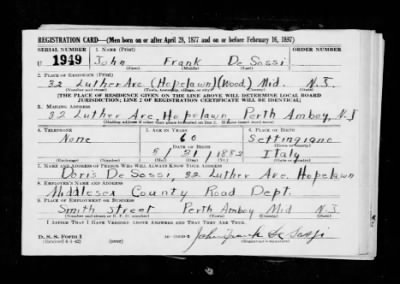 REGISTRATION CARD—(Men born on or after April 28, 1877 and on or before February 16, 1897)
SERIAL NUMBER 1. NAME (Print) ORDER NUMBER
U 1949 John Frank De Sossi
(First) (Middle) (Last)
2. PLACE OF RESIDENCE (Print)
32 Luther Ave (Hopelawn) (Wood) Mid. N.J.
(Number and street) (Town, township, village, or city) (County) (State)
[THE PLACE OF RESIDENCE GIVEN ON THE LINE ABOVE WILL DETERMINE LOCAL BOARD
JURISDICTION; LINE 2 OF REGISTRATION CERTIFICATE WILL BE IDENTICAL]
3. MAILING ADDRESS
32 Luther Ave. Hopelawn Perth Amboy, N.J
4. TELEPHONE 5. AGE IN YEARS 6. PLACE OF BIRTH
None 60 Settingiano
DATE OF BIRTH
5 / 31 / 1882 Italy
7. NAME AND ADDRESS OF PERSON WHO WILL ALWAYS KNOW YOUR ADDRESS
Doris De Sossi, 32 Luther Ave. Hopelawn
8. EMPLOYER'S NAME AND ADDRESS
Middlesex County Road Dept.
9. PLACE OF EMPLOYMENT OR BUSINESS
Smith Street Perth Amboy Mid N.J.
I AFFIRM THAT I HAVE VERIFIED ABOVE ANSWERS AND THAT THEY ARE TRUE.
D. S. S. Form 1
(Revised 4-1-42) (over) John Frank De Sossi